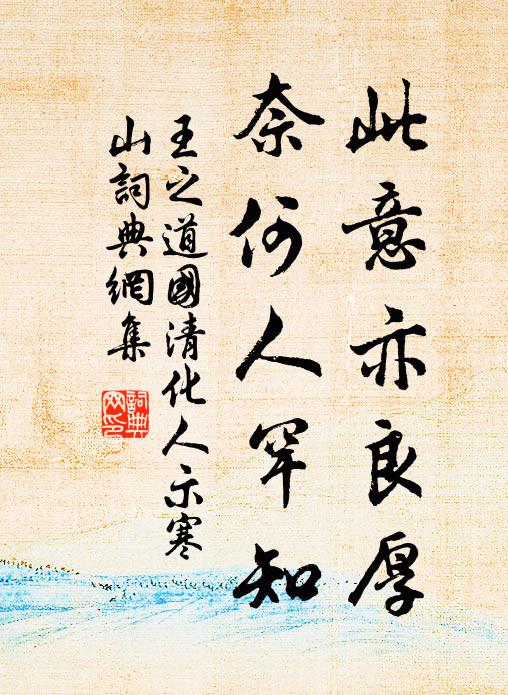 此意亦良厚
奈何人罕知
王之道國清化人示寒
山詞典網集
詞典網印